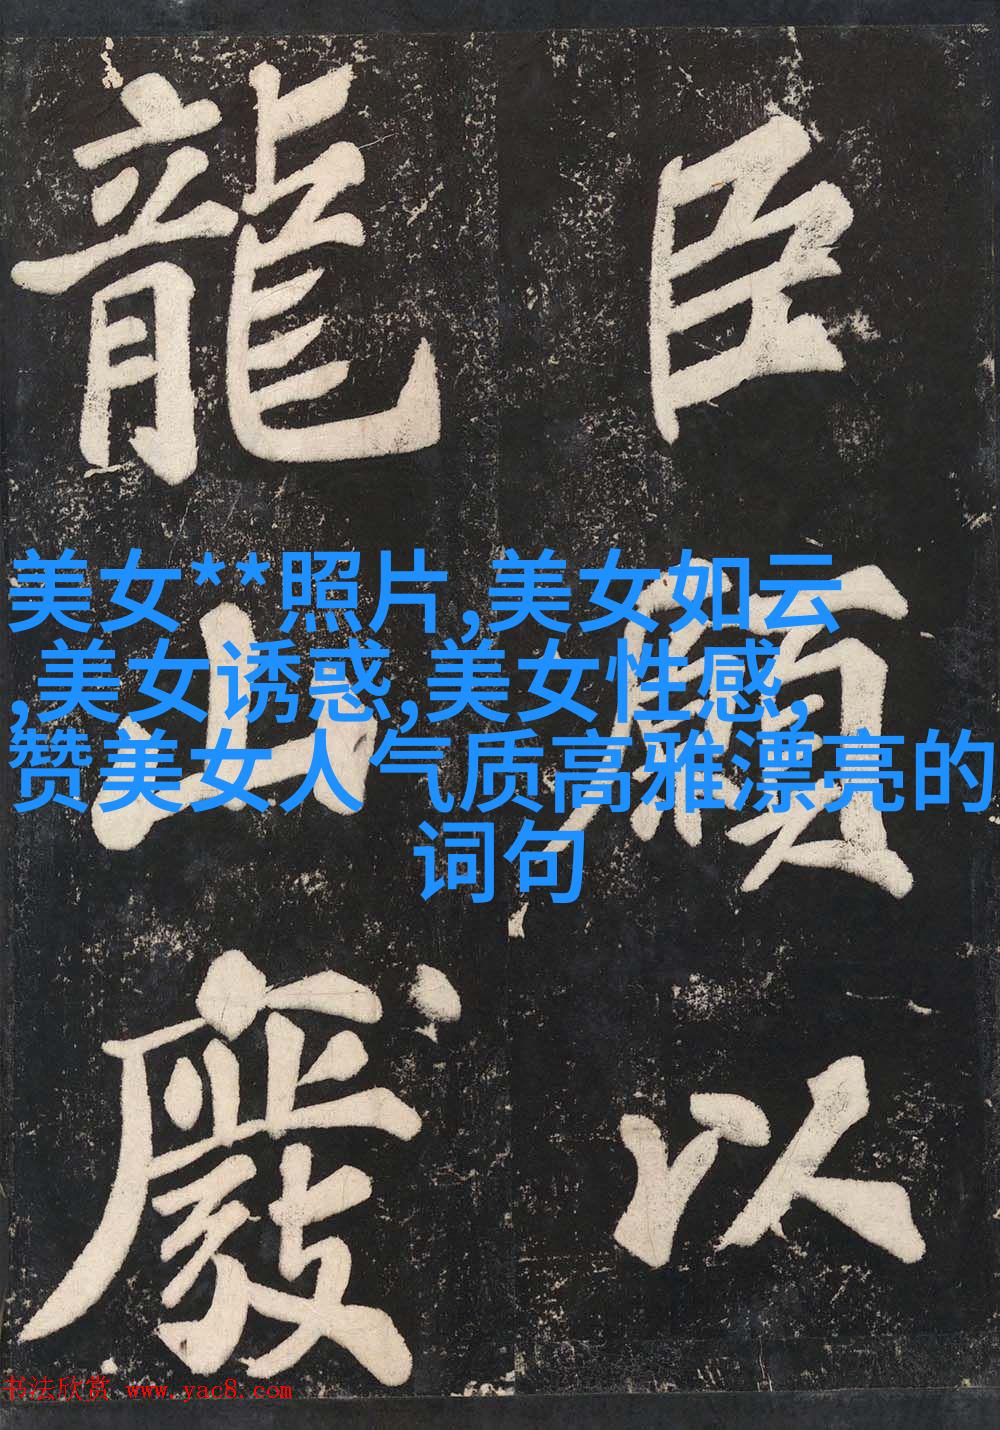 臣願以
龍山廢
美女**照片,美女如云
,美女诱惑,美女性感,
赞美女人气质高雅漂亮的
词句
书法欣赏 www.yac8.com